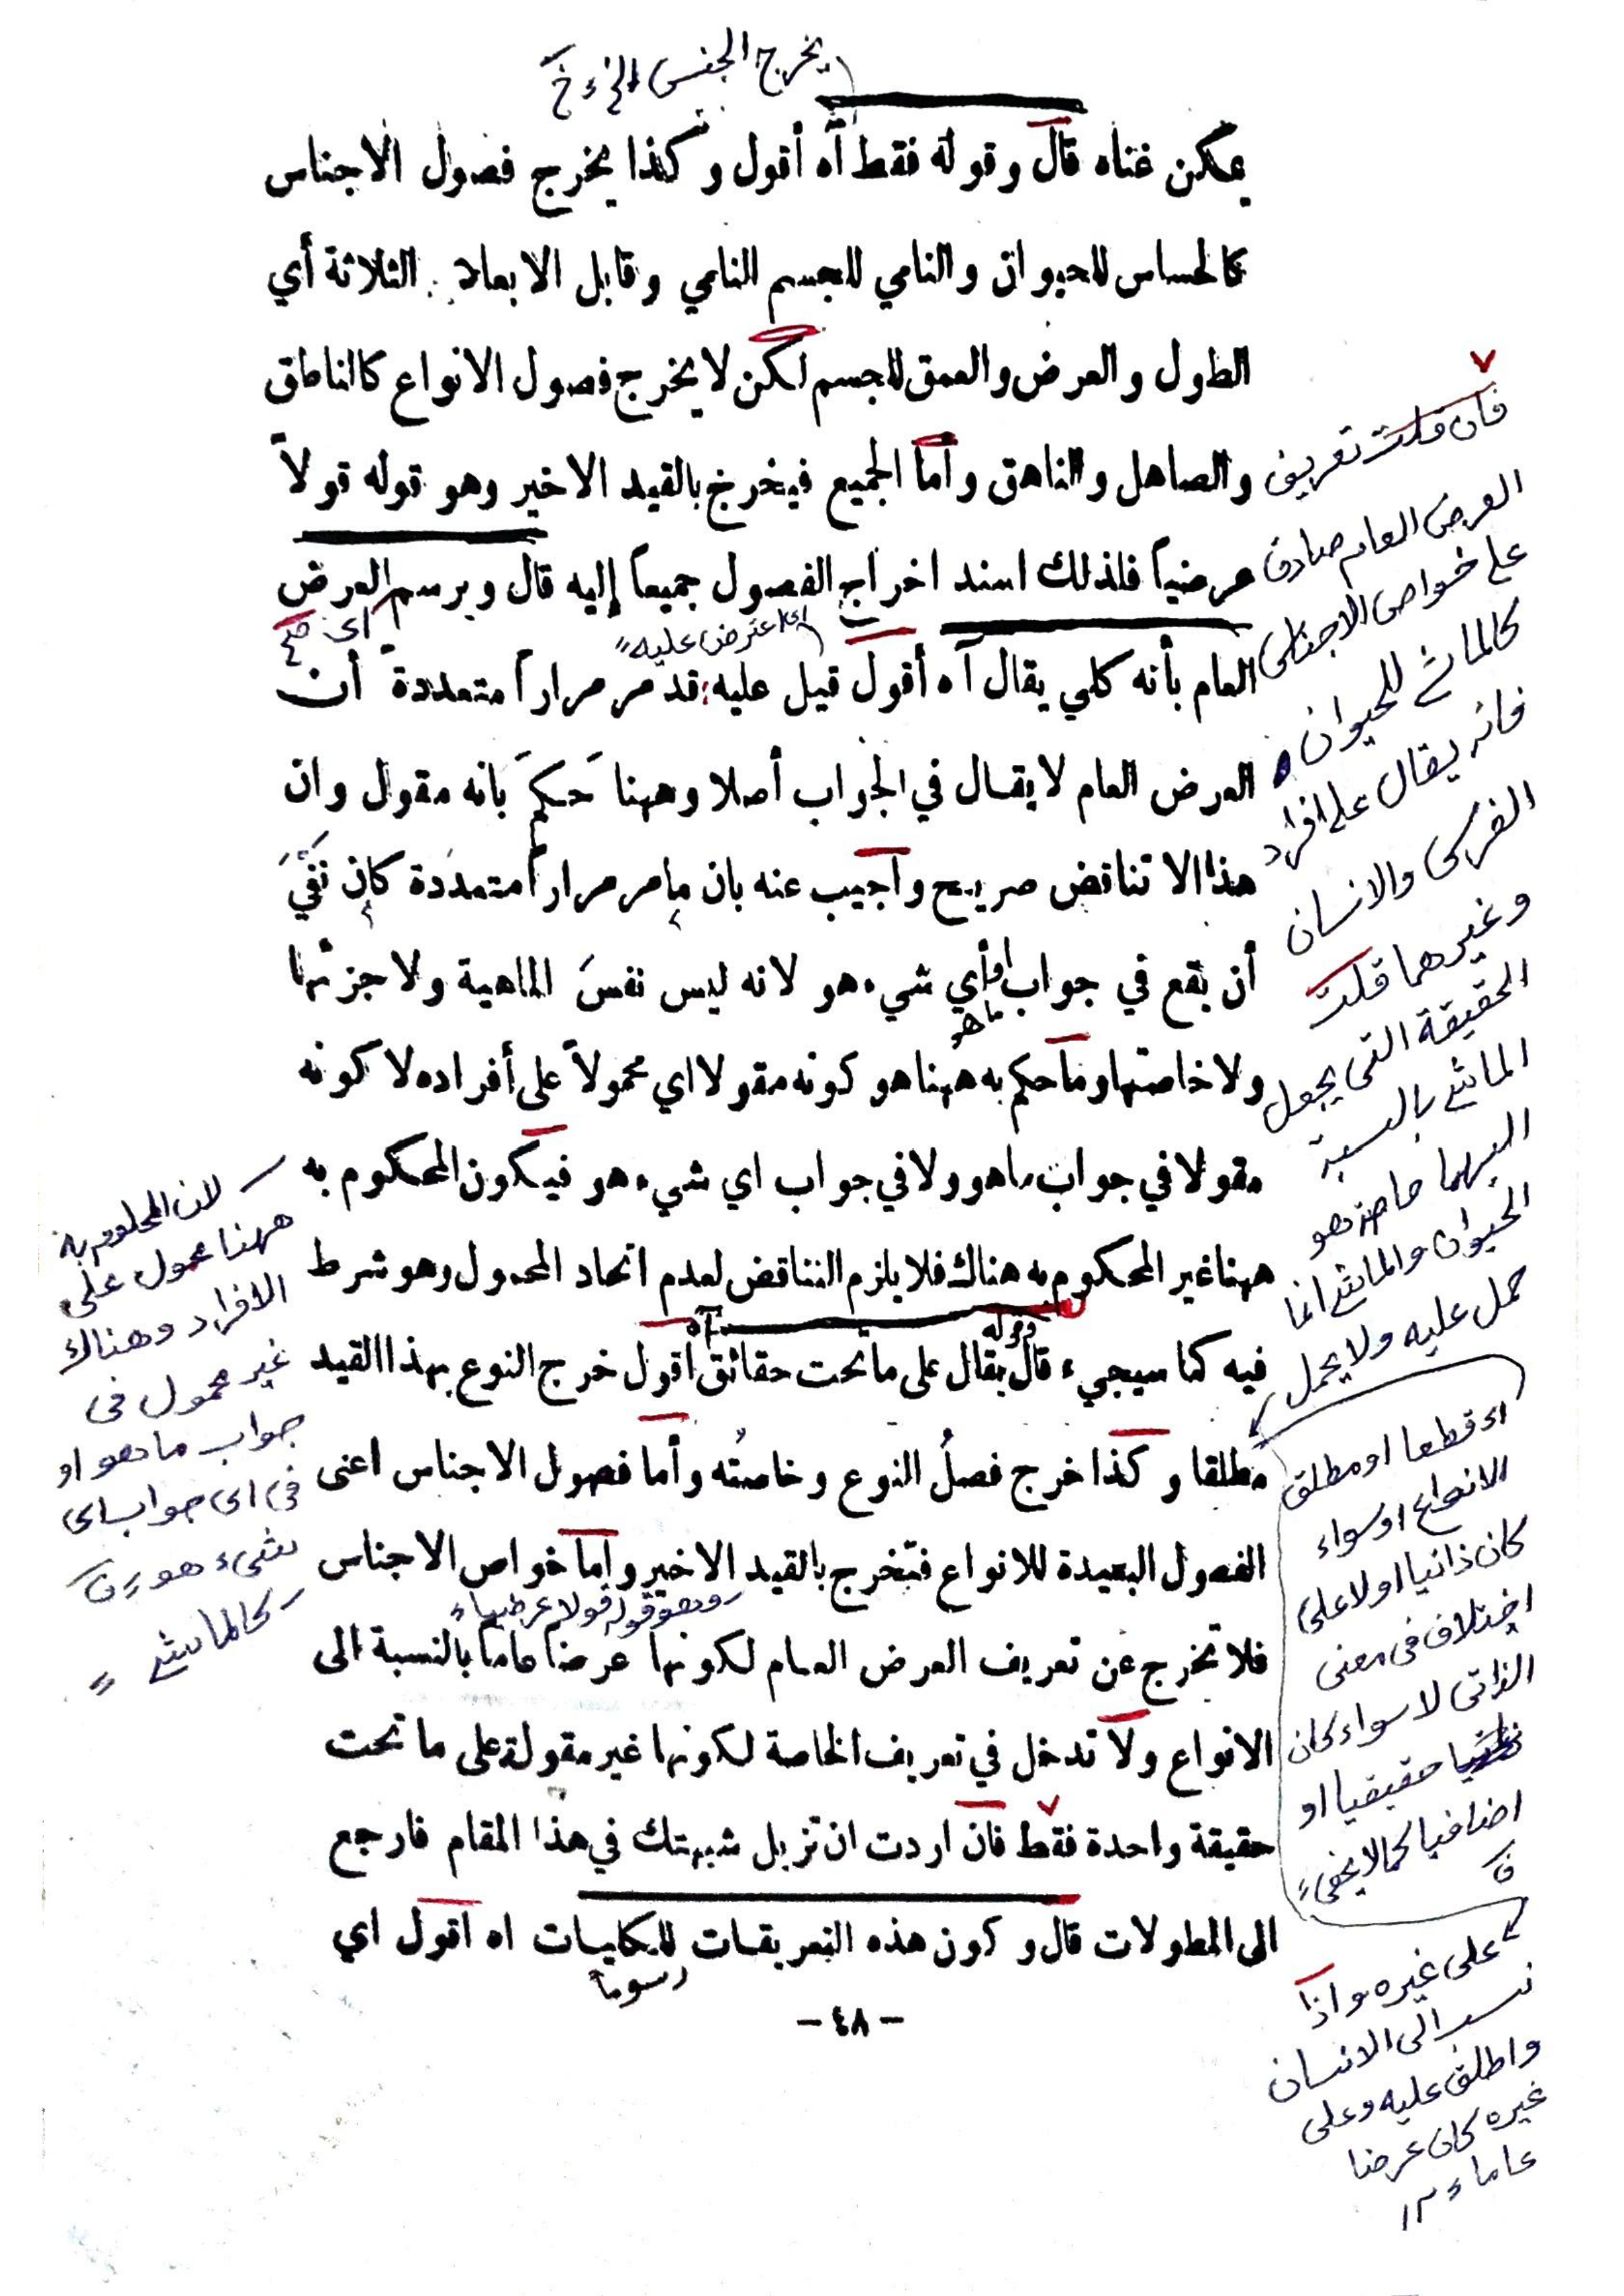 يخرج الجنس الخ
يمكن غناه قال وقوله فقط آه أقول وكذا يخرج فصول الاجناس
كالحساس للحيوان والنامي للجسم النامي وقابل الابعاد الثلاثة أي
الطول والعرض والعمق للجسم لكن لا يخرج فصول الانواع كالناطق
والصاهل والناهق وأما الجميع فيخرج بالقيد الاخير وهو قوله قولاً
عرضياً فلذلك اسند اخراج الفصول جميعاً إليه قال ويرسم العرض
اى اعترض عليه
العام بأنه كلي يقال آه أقول قيل عليه قد مر مراراً متعددة أن
العرض العام لا يقال في الجواب أصلا وههنا حَكمَ بانه مقول وان
هذا الا تناقض صريح وأجيب عنه بان ما مر مراراً متعددة كان نَفْيَ
أن يقع في جواب أي شيء هو لانه ليس نفسَ الماهية ولا جزئها
ما هو
ولا خاصتها وما حكم به ههنا هو كونه مقولا اي محمولاً على أفراده لا كونه
مقولا في جواب ما هو ولا في جواب اي شيء هو فيكون المحكوم به
ههنا غير المحكوم به هناك فلا يلزم التناقض لعدم اتحاد المحمول وهو شرط
قوله
آه
فيه كما سيجيء قال يقال على ما تحت حقائق اقول خرج النوع بهذا القيد
مطلقا وكذا خرج فصلُ النوع وخاصتُه وأما فصول الاجناس اعنى
الفصول البعيدة للانواع فتخرج بالقيد الاخير واما خواص الاجناس
وهو قوله قولا عرضيا
فلا تخرج عن تعريف العرض العام لكونها عرضا عاما بالنسبة الى
الانواع ولا تدخل في تعريف الخاصة لكونها غير مقولة على ما تحت
حقيقة واحدة فقط فان اردت ان تزيل شبهتك في هذا المقام فارجع
الى المطولات قال وكون هذه التعريفات للكليات اه اقول اي
رسوما
- ٤٨ -
فان قلت تعريف
العرض العام صادق
على خواص الاجناس
كالماشى للحيوان
فانه يقال على افراد
الفرس والانسان
وغيرهما قلت
الحقيقة التى يجعل
الماشى بالنسبة
اليها خاصة هو
الحيوان والماشى انما
حمل عليه ولا يحمل
على غيره واذا
نسب الى الانسان
واطلق عليه وعلى
غيره كان عرضا
عاما
اى قطعا او مطلق
الانواع او سواء
كان ذاتيا او لا على
اختلاف فى معنى
الذاتى لا سواء كان
حقيقيا او
اضافيا كما لا يخفى
لان المحكوم به
ههنا محمول على
الافراد وهناك
غير محمول فى
جواب ما هو او
فى اى جواب اى
شىء هو
كالماشى